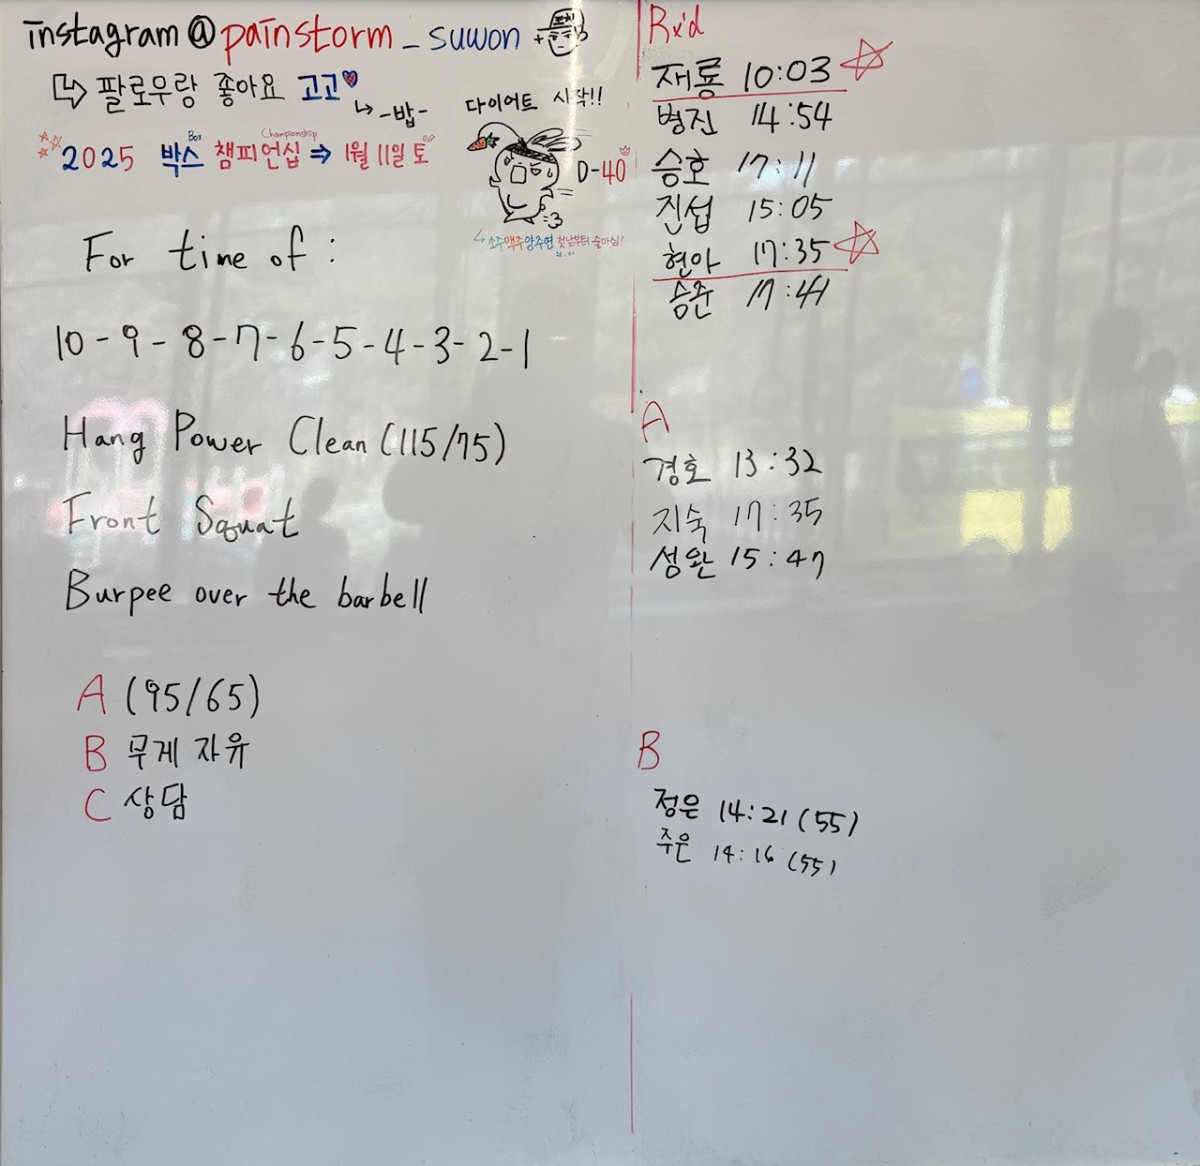 instagram@painstorm_suwon
팔로우랑 좋아요 고고
-밥-
다이어트 시작!!
Box Championship
2025 박스 챔피언십 ⇒ 1월 11일 토
D-40
소주맥주양주연 첫날부터 술마심!
For time of :
10-9-8-7-6-5-4-3-2-1
Hang Power Clean (115/75)
Front Squat
Burpee over the barbell
A (95/65)
B 무게 자유
C 상담
Rx'd
재룡 10:03
병진 14:54
승호 17:11
진섭 15:05
현아 17:35
승준 17:41
A
경호 13:32
지숙 17:35
성완 15:47
B
정은 14:21 (55)
주은 14:16 (55)